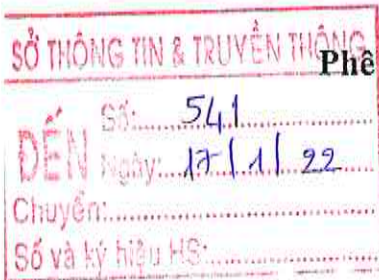 SỞ THÔNG TIN & TRUYỀN THÔNG
Phê
ĐẾN
Số: 541
Ngày: 17/1/22
Chuyển:
Số và ký hiệu HS: